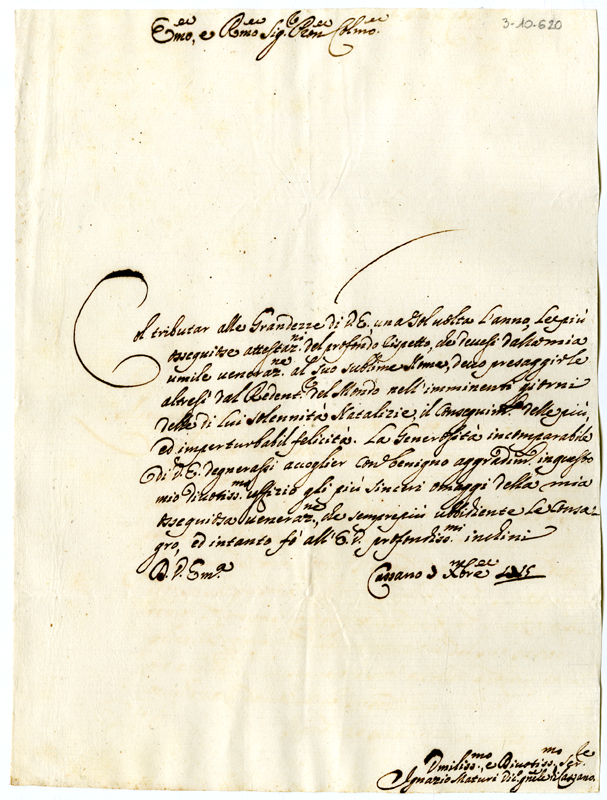 3-10-620
Emo, e Rmo Sig.r Pron Colmo
Col tributar alle Grandezze di V.E. una sol volta l'anno, le più
ossequiose attestaz.ni del profondo rispetto, che devesi dalla mia
umile veneraz.ne al suo sublime Nome, devo presaggirle
altresì dal Redent.re del Mondo nell'imminenti giorni
delle di Lui Solennità Natalizie, il conseguim.to delle più
ed imperturbabil felicità. La Generosità incomparabile
di V.E. degnerassi accoglier con benigno aggradim.to in questo
mio divotiss.mo uffizio gli più sinceri omaggi della mia
ossequiosa veneraz.ne, che sempre più ubbidiente le consa-
gro, ed intanto fò all'E.V. profondiss.mi inchini
D. V. Em.a
Cassano 3 Xbre
Umiliss.mo, e Divotiss.mo Ser.re
Ignazio Maturi Vic.o Gnle di Cassano.